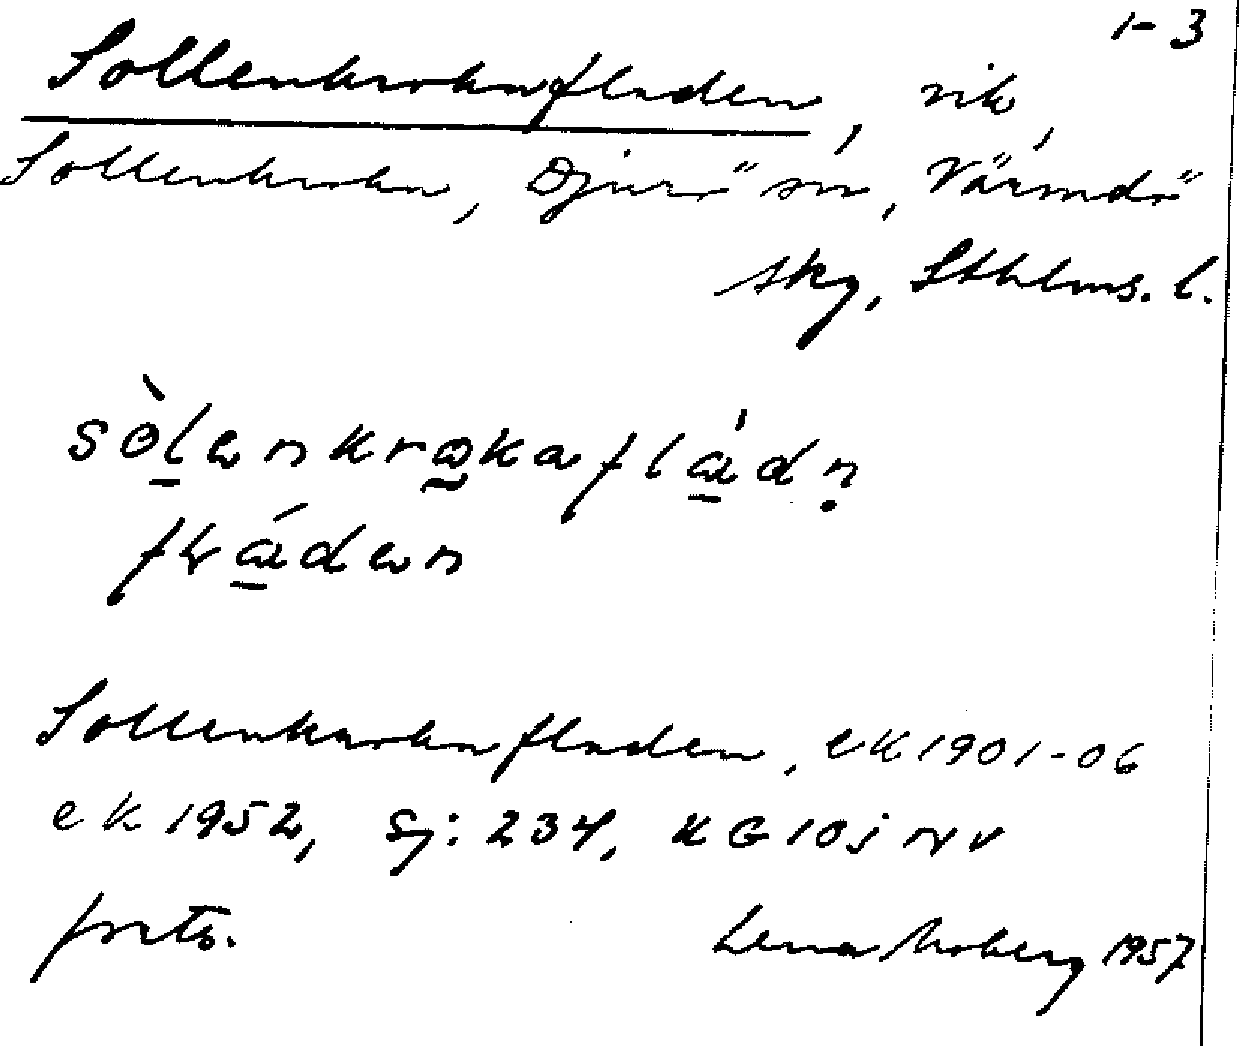 1-3
Sollenkrokafladen, vik,
Sollenkroka, Djurö sn, Värmdö
skg, Sthlms. l.
sòlenkrokafládn
fláden
Sollenkrokafladen, ek 1901-06
ek 1952, Sj: 234, KG 10j NV
forts.
Lena Moberg 1957